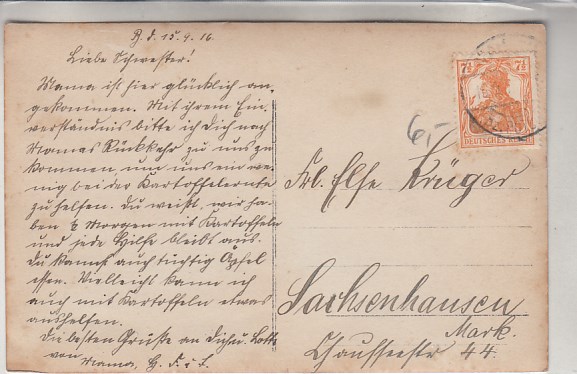 d. 15.9.16.
Liebe Schwester!
Mama ist hier glücklich an-
gekommen. Mit ihrem Ein-
verständnis bitte ich Dich nach
Mamas Rückkehr zu uns zu
kommen, und uns ein we-
nig bei der Kartoffelernte
zu helfen. Du weißt, wir ha-
ben Morgen mit Kartoffeln
und jede Hilfe bleibt aus.
Du kannst auch tüchtig Äpfel
essen. Vielleicht kann ich
auch mit Kartoffeln etwas
aushelfen.
Die besten Grüße an Dich u. Lotte
von Mama,
7½ 7½
DEUTSCHES REICH
6,-
Frl. Else Krüger
Sachsenhausen
Mark.
Chausseestr 44.